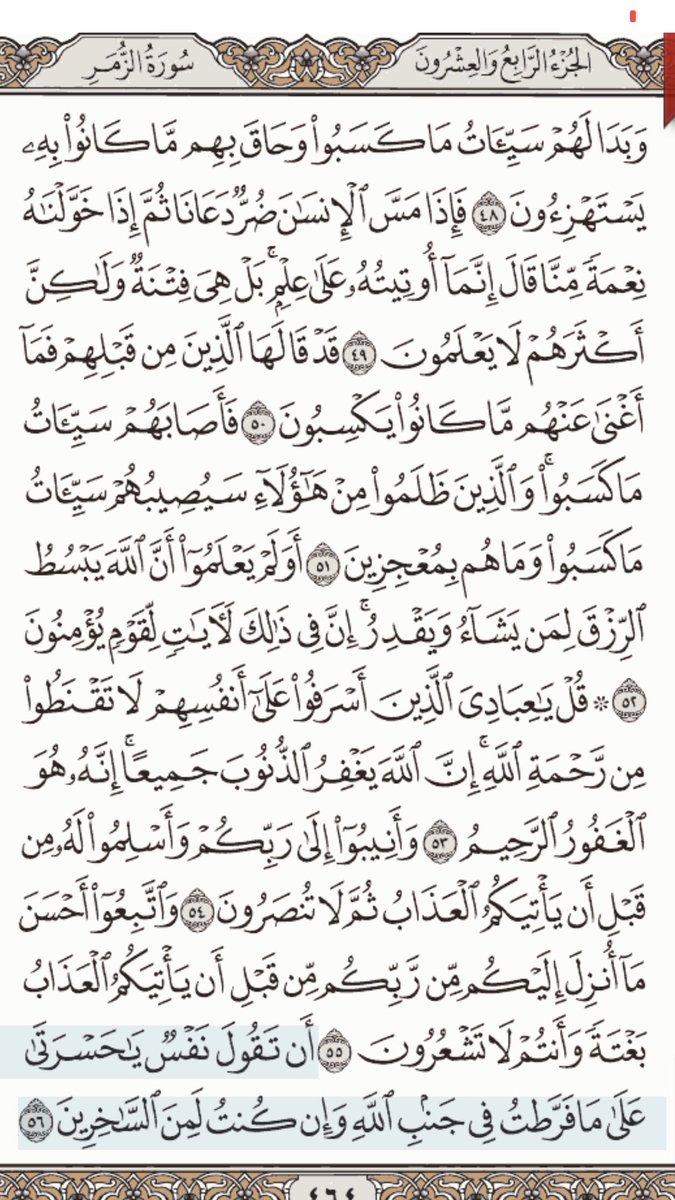 الجُزْءُ الرَّابِعُ وَالعِشْرُونَ سُورَةُ الزُّمَرِ
وَبَدَا لَهُمْ سَيِّـَٔاتُ مَا كَسَبُوا۟ وَحَاقَ بِهِم مَّا كَانُوا۟ بِهِۦ
يَسْتَهْزِءُونَ ٤٨ فَإِذَا مَسَّ ٱلْإِنسَٰنَ ضُرٌّ دَعَانَا ثُمَّ إِذَا خَوَّلْنَٰهُ
نِعْمَةً مِّنَّا قَالَ إِنَّمَآ أُوتِيتُهُۥ عَلَىٰ عِلْمٍۭ ۚ بَلْ هِىَ فِتْنَةٌ وَلَٰكِنَّ
أَكْثَرَهُمْ لَا يَعْلَمُونَ ٤٩ قَدْ قَالَهَا ٱلَّذِينَ مِن قَبْلِهِمْ فَمَآ
أَغْنَىٰ عَنْهُم مَّا كَانُوا۟ يَكْسِبُونَ ٥٠ فَأَصَابَهُمْ سَيِّـَٔاتُ
مَا كَسَبُوا۟ ۚ وَٱلَّذِينَ ظَلَمُوا۟ مِنْ هَٰٓؤُلَآءِ سَيُصِيبُهُمْ سَيِّـَٔاتُ
مَا كَسَبُوا۟ وَمَا هُم بِمُعْجِزِينَ ٥١ أَوَلَمْ يَعْلَمُوٓا۟ أَنَّ ٱللَّهَ يَبْسُطُ
ٱلرِّزْقَ لِمَن يَشَآءُ وَيَقْدِرُ ۚ إِنَّ فِى ذَٰلِكَ لَـَٔايَٰتٍ لِّقَوْمٍ يُؤْمِنُونَ
٥٢ ۞ قُلْ يَٰعِبَادِىَ ٱلَّذِينَ أَسْرَفُوا۟ عَلَىٰٓ أَنفُسِهِمْ لَا تَقْنَطُوا۟
مِن رَّحْمَةِ ٱللَّهِ ۚ إِنَّ ٱللَّهَ يَغْفِرُ ٱلذُّنُوبَ جَمِيعًا ۚ إِنَّهُۥ هُوَ
ٱلْغَفُورُ ٱلرَّحِيمُ ٥٣ وَأَنِيبُوٓا۟ إِلَىٰ رَبِّكُمْ وَأَسْلِمُوا۟ لَهُۥ مِن
قَبْلِ أَن يَأْتِيَكُمُ ٱلْعَذَابُ ثُمَّ لَا تُنصَرُونَ ٥٤ وَٱتَّبِعُوٓا۟ أَحْسَنَ
مَآ أُنزِلَ إِلَيْكُم مِّن رَّبِّكُم مِّن قَبْلِ أَن يَأْتِيَكُمُ ٱلْعَذَابُ
بَغْتَةً وَأَنتُمْ لَا تَشْعُرُونَ ٥٥ أَن تَقُولَ نَفْسٌ يَٰحَسْرَتَىٰ
عَلَىٰ مَا فَرَّطتُ فِى جَنۢبِ ٱللَّهِ وَإِن كُنتُ لَمِنَ ٱلسَّٰخِرِينَ ٥٦
٤٦٤